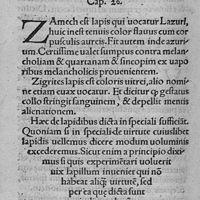 Cap. 26.
ZAmech est lapis qui vocatur Lazuri,
huic inest tenuis color flauus cum cor
pusculis aureis. Fit autem inde azuri
um. Certissime valet sumptus contra melan
choliam & quartanam & sincopim ex uapo
ribus melancholicis prouenientem.
Zigrites lapis est coloris uitrei, alio nomi
ne etiam euax vocatur. Et dicitur q̓ gestus
collo stringit sanguinem, & depellit mentis
alienationem.
Haec de lapidibus dicta in speciali sufficiāt.
Quoniam si in speciali de uirtute cuiuslibet
lapidis uellemus dicere modum voluminis
excederemus. Sicut enim a principio dixi
mus si quis experimētari voluerit
uix lapillum inueniet qui nō
habeat aliq̄ uirtutē, sed
per ea que dicta sunt